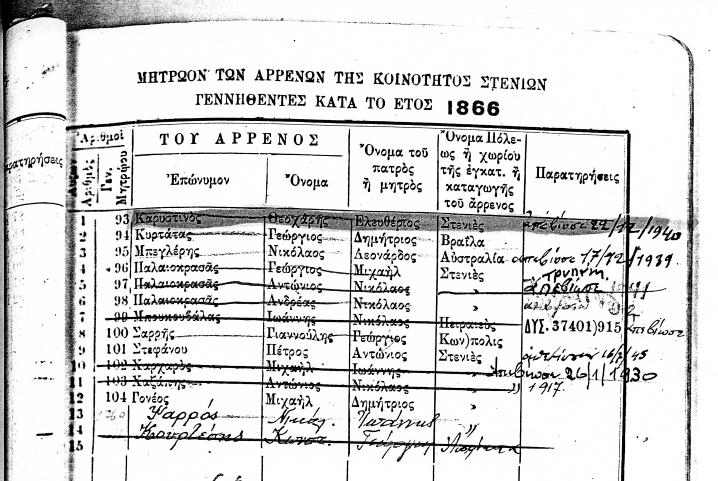 ΜΗΤΡΩΟΝ ΤΩΝ ΑΡΡΕΝΩΝ ΤΗΣ ΚΟΙΝΟΤΗΤΟΣ ΣΤΕΝΙΩΝ
ΓΕΝΝΗΘΕΝΤΕΣ ΚΑΤΑ ΤΟ ΕΤΟΣ 1866
Ἀριθμοὶ ΤΟΥ ΑΡΡΕΝΟΣ Ὄνομα τοῦ πατρὸς ἢ μητρὸς Ὄνομα Πόλεως ἢ χωρίου τῆς ἐγκατ. ἢ καταγωγῆς τοῦ ἄρρενος Παρατηρήσεις
Ἀριθμὸς Γεν. Μητρώου Ἐπώνυμον Ὄνομα
1 93 Καρυστινὸς Θεοχάρης Ἐλευθέριος Στενιὲς ἀπεβίωσε 22/12/1940
2 94 Κυρτάτας Γεώργιος Δημήτριος Βραΐλα
3 95 Μπεγλέρης Νικόλαος Λεονάρδος Αὐστραλία ἀπεβίωσε 17/12/1939
4 96 Παλαιοκρασᾶς Γεώργιος Μιχαὴλ Στενιὲς
5 97 Παλαιοκρασᾶς Ἀντώνιος Νικόλαος » ἀπεβίωσε
6 98 Παλαιοκρασᾶς Ἀνδρέας Νικόλαος »
7 99 Μπουκουβάλας Ἰωάννης Νικόλαος Πειραιεὺς ΔΥΣ. 37401)915 ἀπεβίωσε
8 100 Σαρρῆς Γιαννούλης Γεώργιος Κων)πολις
9 101 Στεφάνου Πέτρος Ἀντώνιος Στενιὲς 16/7/45
10 102 Καρχαρὸς Μιχαὴλ Ἰωάννης » ἀπεβίωσε 26/1/1930
11 103 Χαζάπης Ἀντώνιος Νικόλαος » 1917.
12 104 Γονέος Μιχαὴλ Δημήτριος »
13 Ψαρρός Νικόλ. Ἰωάννης "
14 Κουρτέσης Κωνσ. Γεώργιος
15